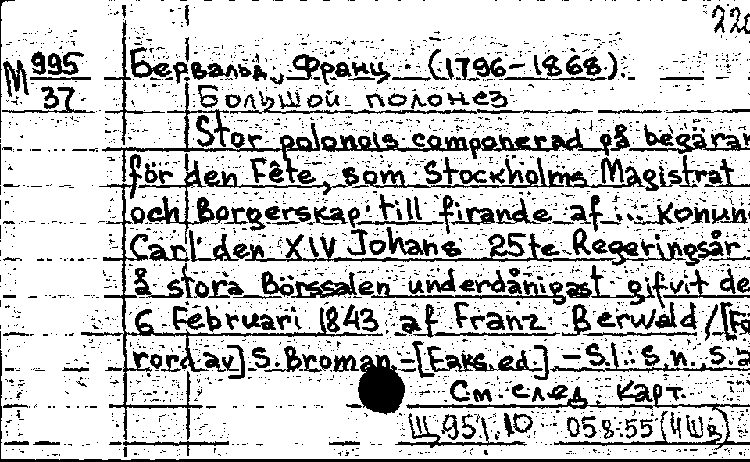 220
M 995 Бервальд, Франц. (1796-1868).
37 Большой полонез
Stor polonois componerad på begäran
för den Fête, som Stockholms Magistrat
och Borgerskap till firande af ... Konun
Carl den XIV Johans 25te Regeringsår
å stora Börssalen underdånigast gifvit de
6 Februari 1843 af Franz Berwald /[Fö
rord av] S. Broman. - [Faks. ed.]. - S.l.: S.n., S.a
См. след. карт.
Щ 951.10 058-55 (НШВ)